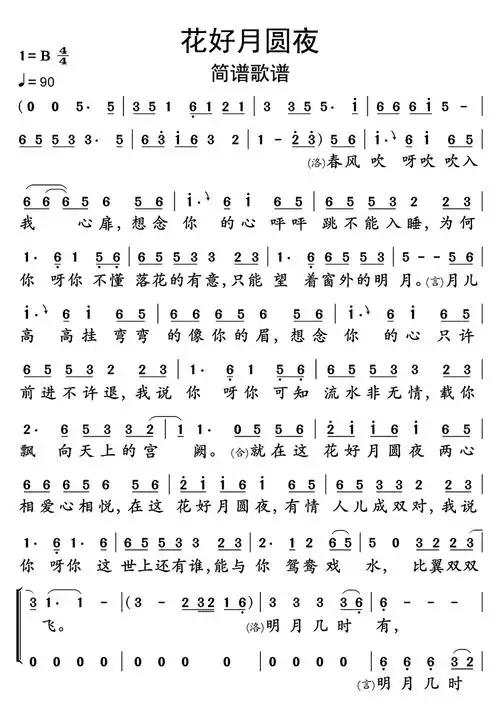 花好月圆夜
1=B 4/4
简谱歌谱
♩=90
(0 0 5· 5 | 3 5 1 6 1 2 1 | 3 3 5 5· i | 6 6 6 i 5 -
6 5 5 3 3· 5 | 6 3 i 6 3 2 | 1 - 2·3) 5 6 | i· i 6 5
(洛)春风 吹 呀吹 吹入
6 6 6 5 6 5 6 | i· 6 i 6 5 | 6 5 5 3 3 2 3
我 心扉,想念 你 的心 呯呯 跳不能入睡,为何
1· 6 1 5 6 | 6 5 5 3 3 2 3 | 1· 6 5 3 3 2 | 5 - - 5 6
你 呀你 不懂 落花的有意,只能 望 着窗外的明 月。(言)月儿
i· 6 i 6 5 | 6 6 6 5 6 5 6 | i· 6 i 6 5
高 高挂 弯弯 的像你的眉,想念 你 的心 只许
6 5 5 3 3 2 3 | 1· 6 1 5 6 | 6 5 5 3 3 2 3
前进不许退,我说 你 呀你 可知 流水非无情,载你
2· 6 5 3 3 2 1 | 1· 0 5 5 6 | 2 i i 6 i 6 5
飘 向天上的宫 阙。(合)就在这 花好月圆夜 两心
6 5 5 3 5 5 6 | 2 i i 6 i 6 5 | 6 5 5 3 3 2 3
相爱心相悦,在这 花好月圆夜,有情 人儿成双对,我说
1· 6 1 5 6 | 6 5 5 3 3 2 3 | 2· 1 2 6 5 | 5· 3 5 3 2
你 呀你 这 世上还有谁,能与 你 鸳鸯 戏 水, 比翼 双双
3 1· 1 - | (3 - 2·3 2 3 2 1 6) | 3 3 3 3 6 | 5 - - -
飞。 (洛)明月几时 有,
0 0 0 0 | 0 0 0 0 | 0 0 0 0 | 6 6 6 3 2
(言)明月几时